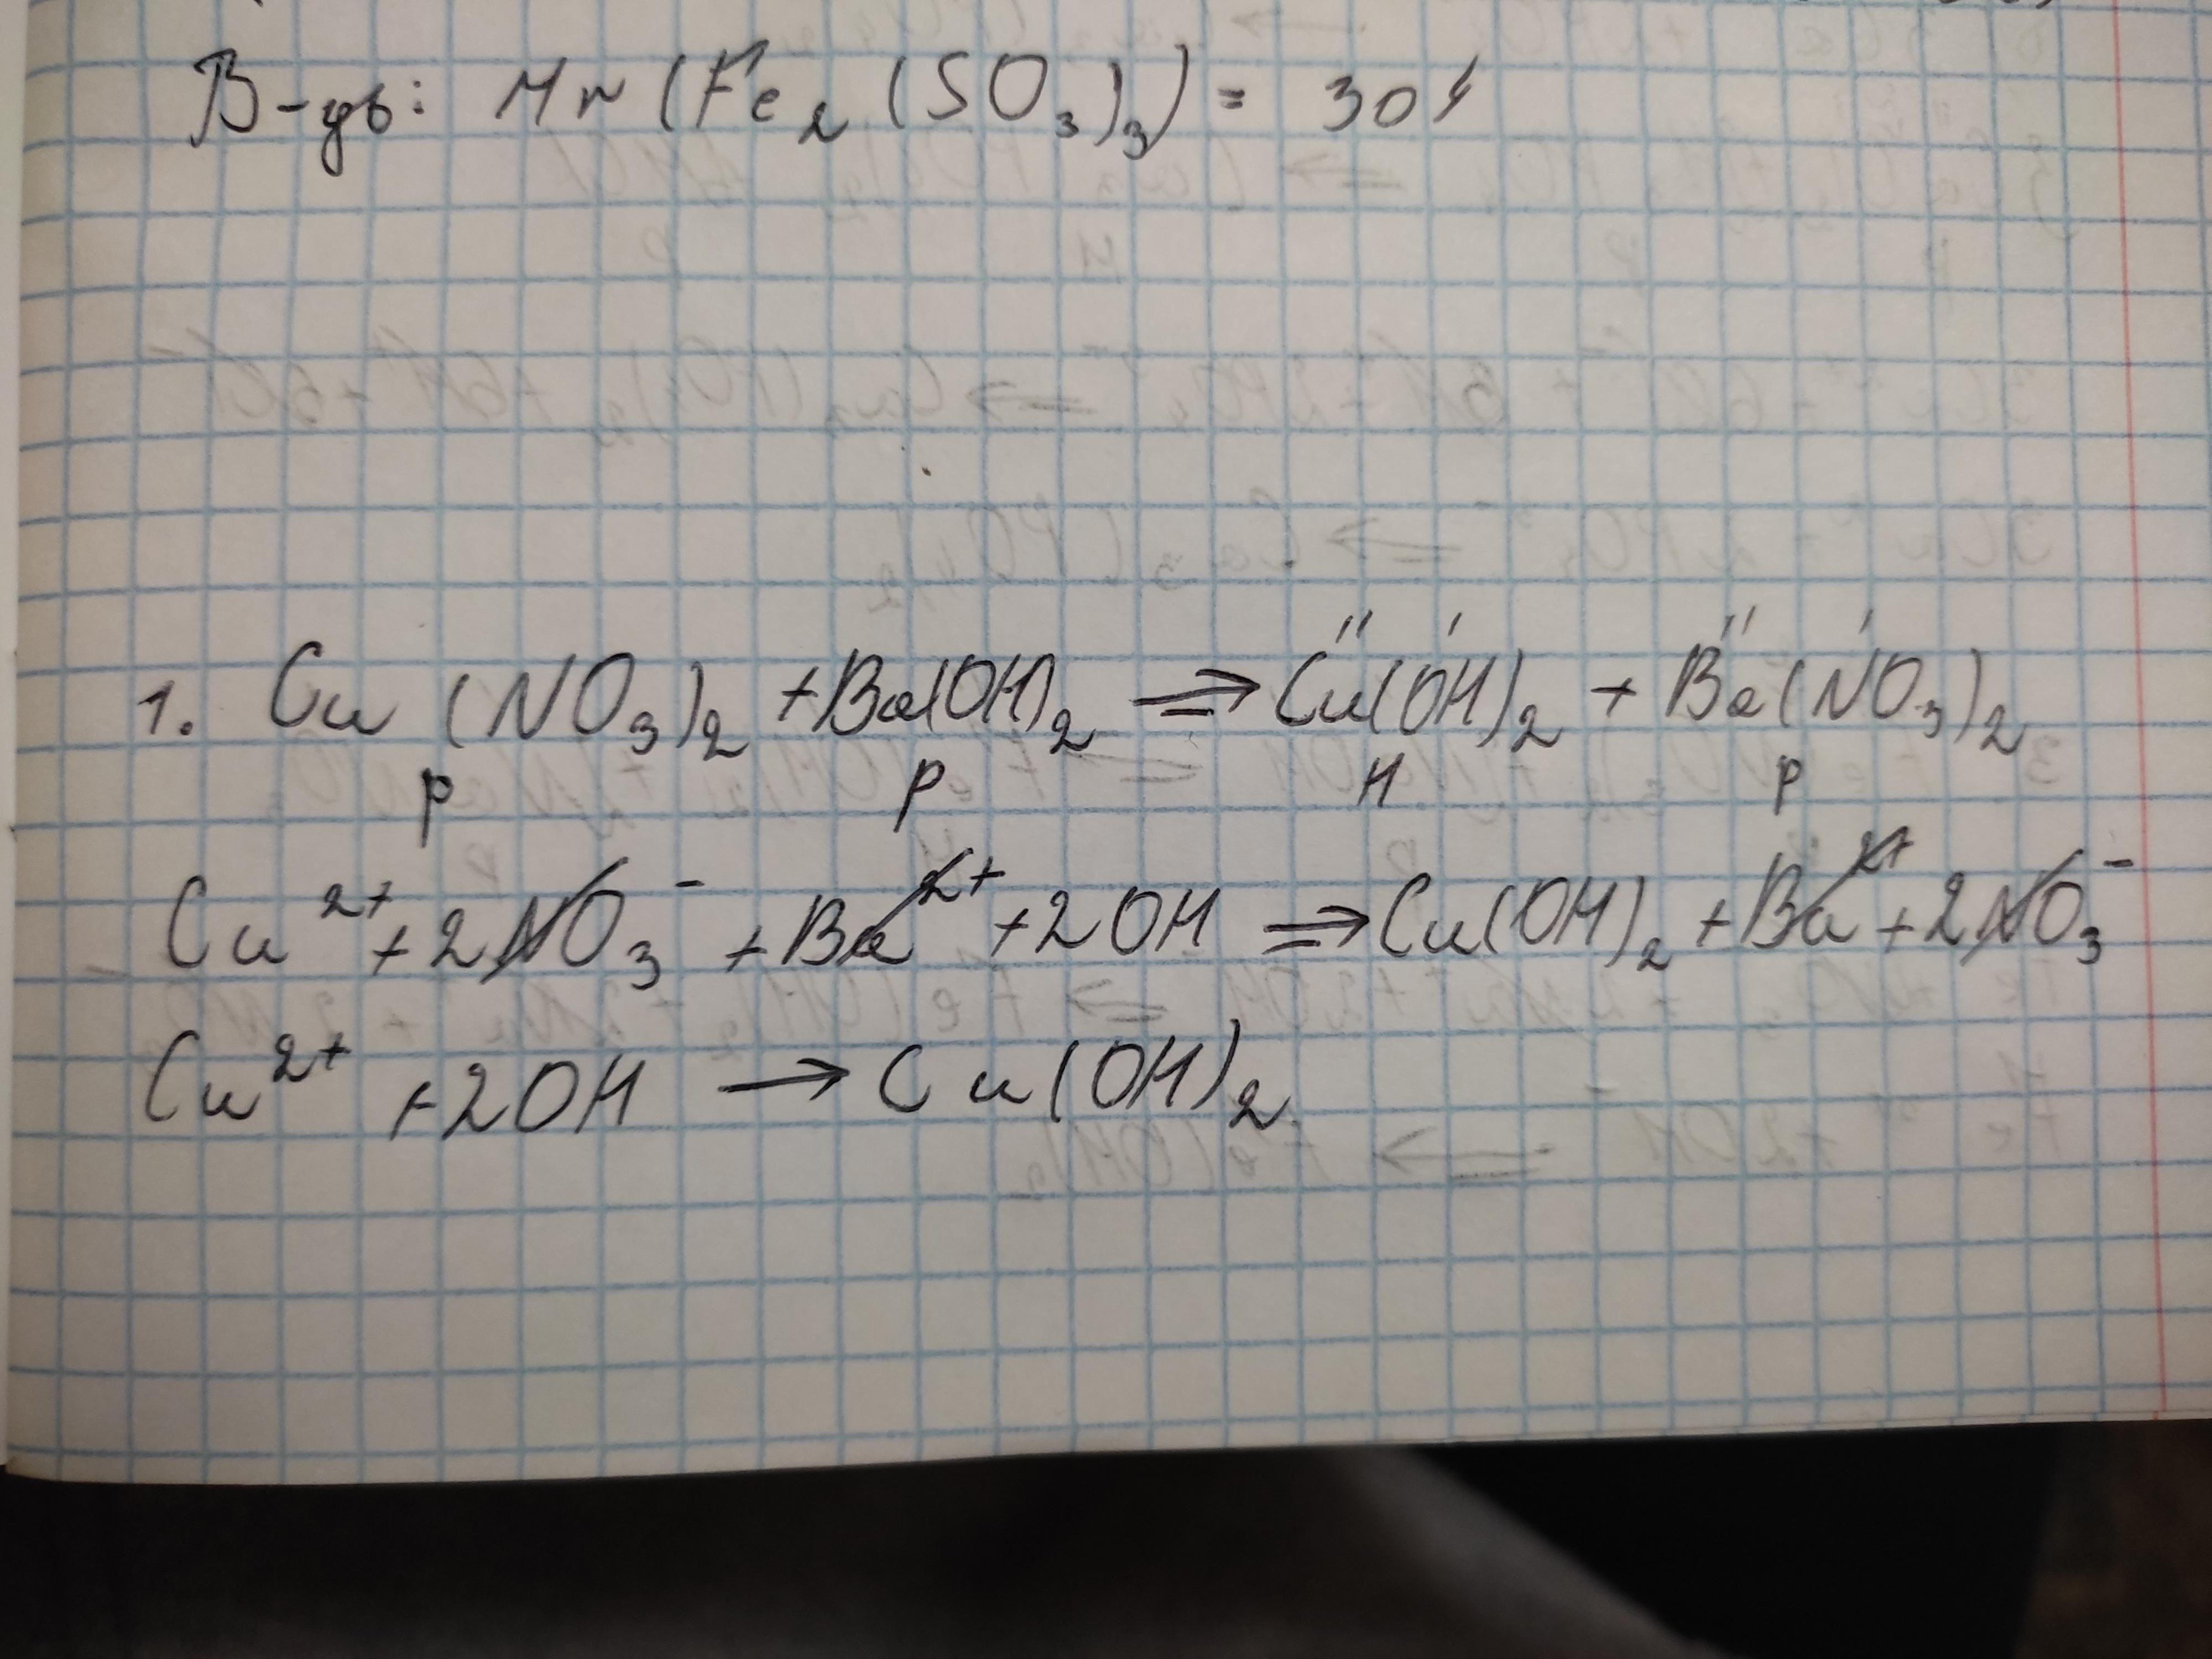 В-дь: Mr (Fe₂(SO₃)₃) = 304
1. Cu(NO₃)₂ + Ba(OH)₂ ⇒ Cu(OH)₂ + Ba(NO₃)₂
р р н р
Cu²⁺ + 2NO₃⁻ + Ba²⁺ + 2OH ⇒ Cu(OH)₂ + Ba²⁺ + 2NO₃⁻
Cu²⁺ + 2OH → Cu(OH)₂